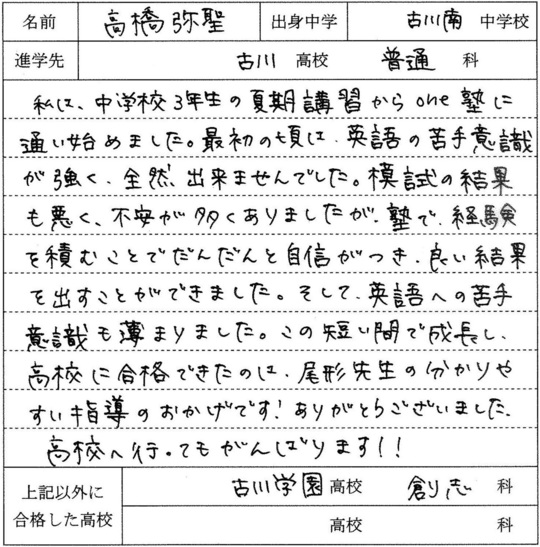 名前 高橋弥聖 出身中学 古川南 中学校
進学先 古川 高校 普通 科
私は、中学校3年生の夏期講習からone塾に
通い始めました。最初の頃は、英語の苦手意識
が強く、全然、出来ませんでした。模試の結果
も悪く、不安が多くありましたが、塾で、経験
を積むことでだんだんと自信がつき、良い結果
を出すことができました。そして、英語への苦手
意識も薄まりました。この短い間で成長し、
高校に合格できたのは、尾形先生の分かりや
すい指導のおかげです!ありがとうございました。
高校へ行ってもがんばります!!
上記以外に
合格した高校
古川学園 高校 創志 科
高校 科